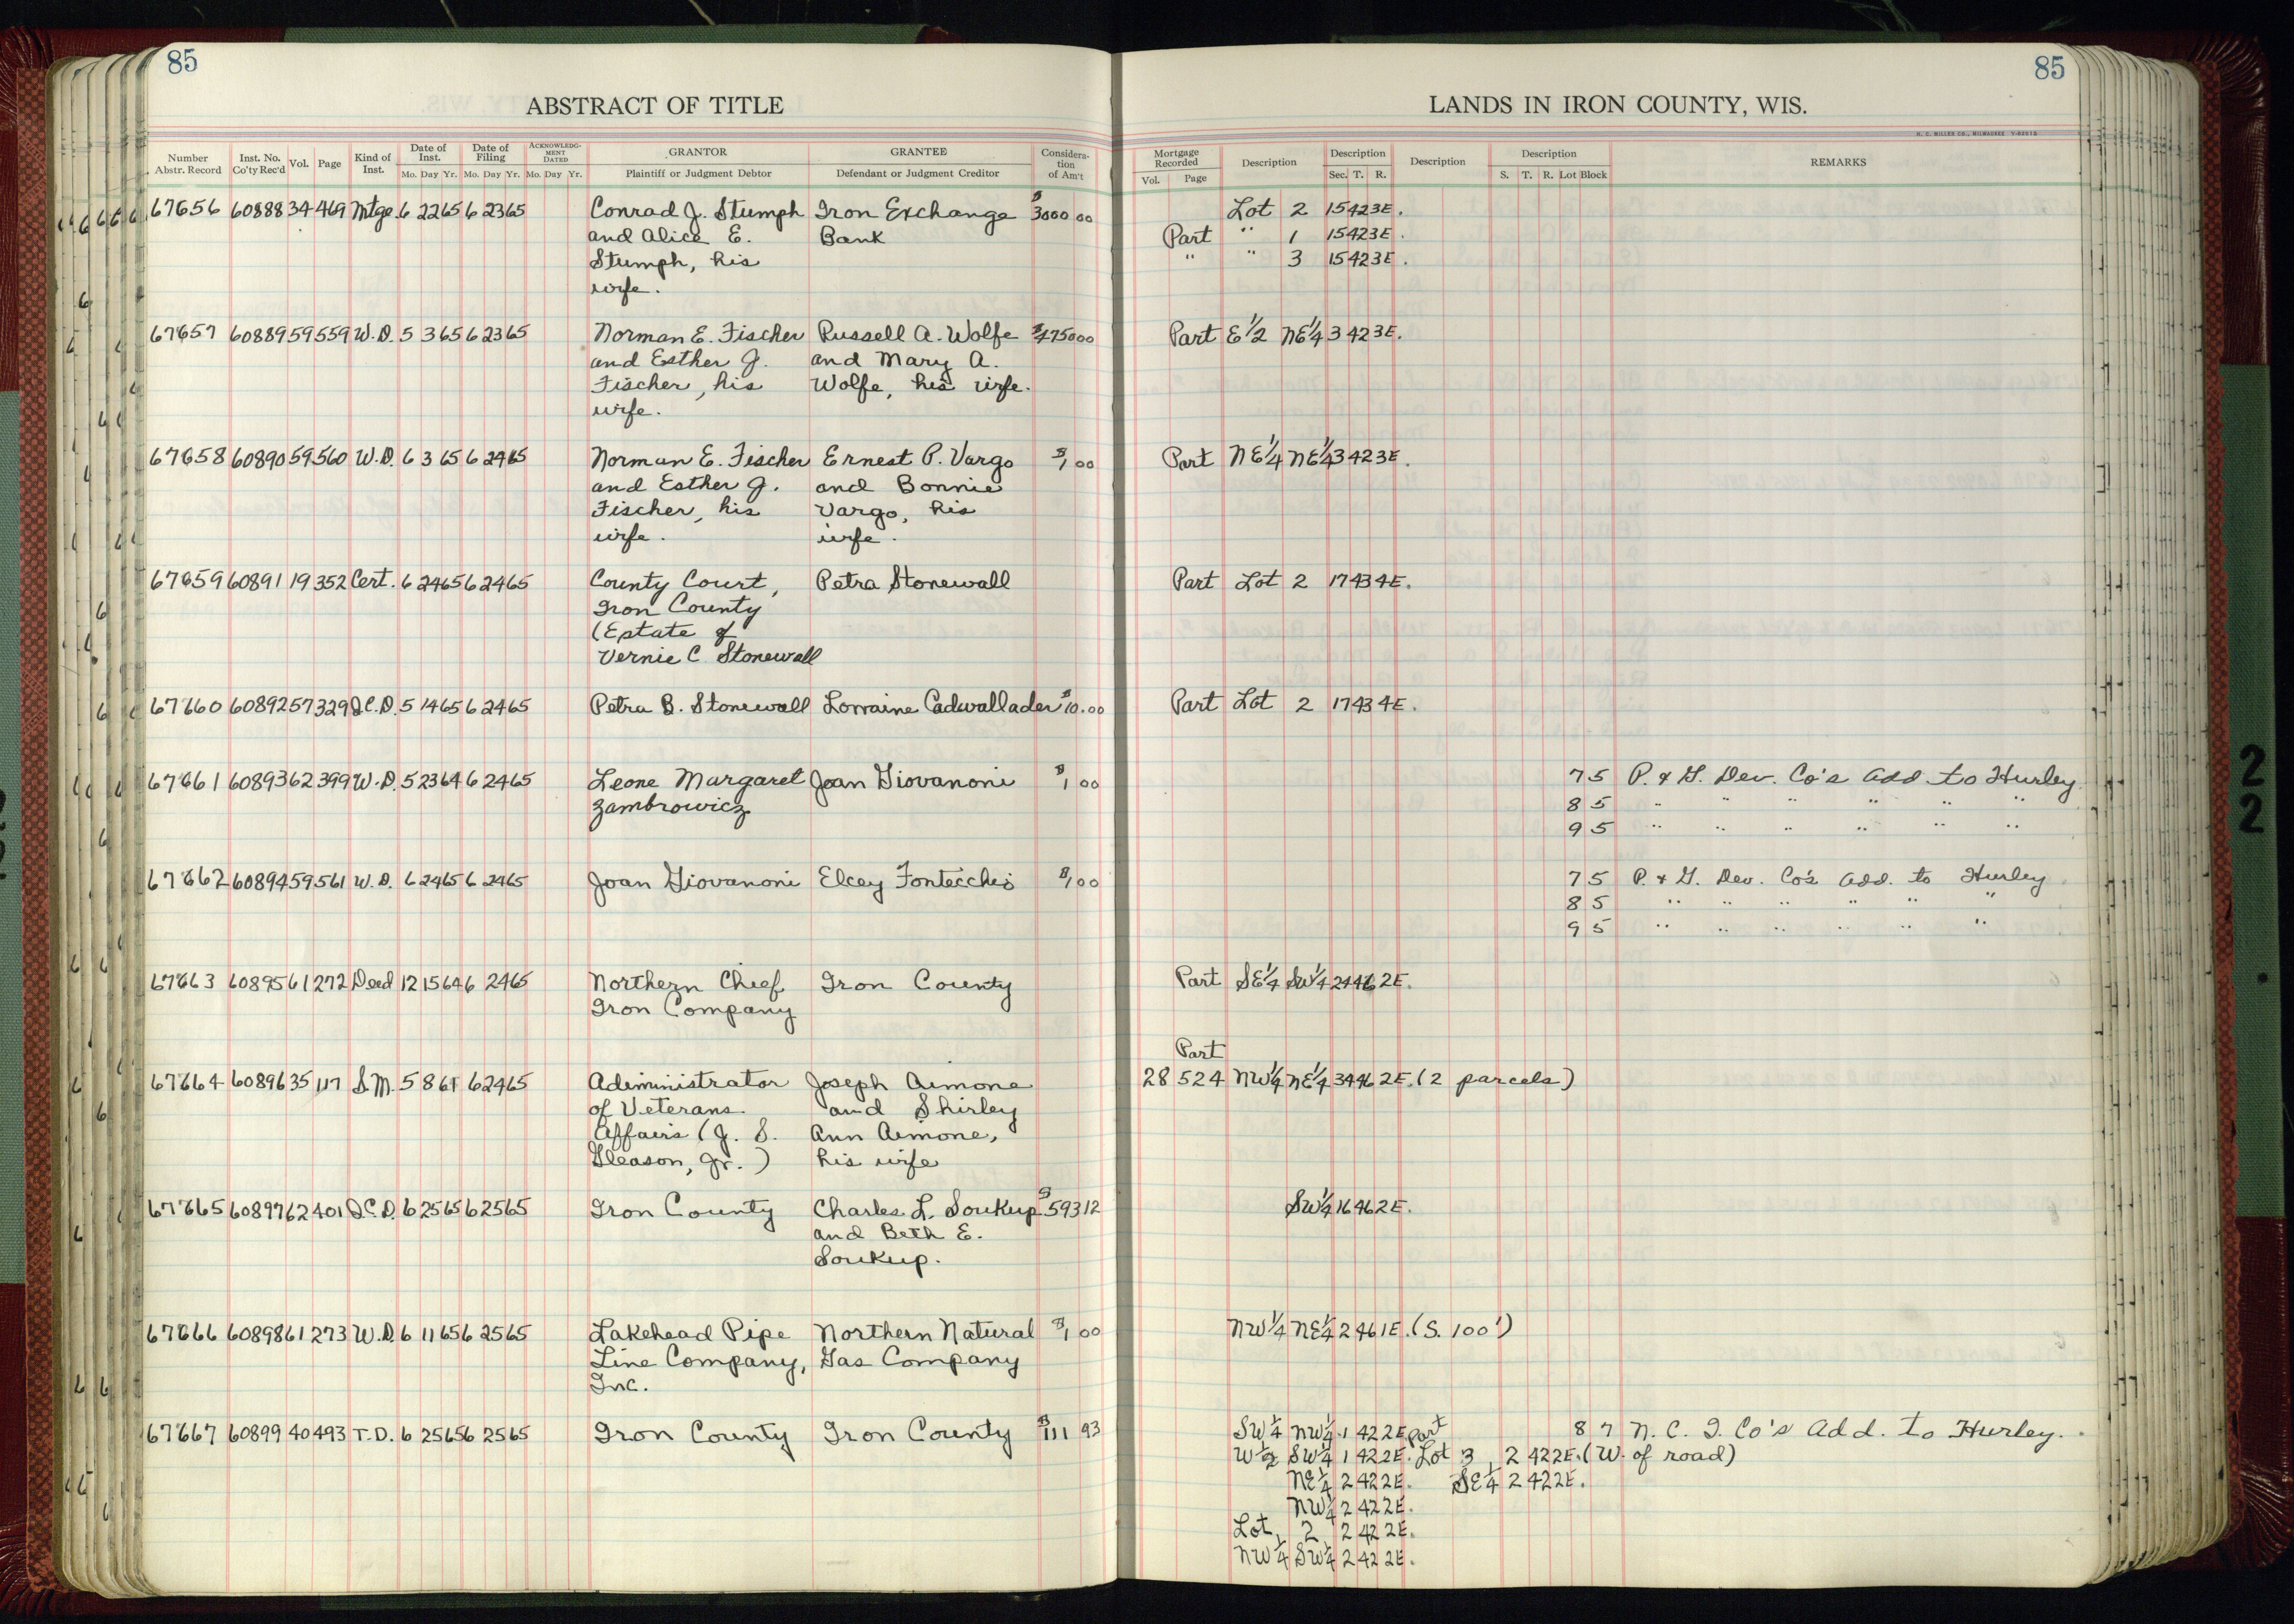 85
85
ABSTRACT OF TITLE
LANDS IN IRON COUNTY, WIS.
H. C. MILLER CO., MILWAUKEE
Number Abstr. Record Inst. No. Co'ty Rec'd Vol. Page Kind of Inst. Date of Inst. Mo. Day Yr. Date of Filing Mo. Day Yr. ACKNOWLEDGMENT DATED Mo. Day Yr. GRANTOR Plaintiff or Judgment Debtor GRANTEE Defendant or Judgment Creditor Consideration of Am't
Mortgage Recorded Vol. Page Description Description Sec. T. R. Description Description S. T. R. Lot Block REMARKS
67656 60888 34 469 Mtge. 6 22 65 6 23 65 Conrad J. Stumph Iron Exchange $3000 00 Lot 2 15 42 3E.
and Alice E. Bank Part " 1 15 42 3E.
Stumph, his " " 3 15 42 3E.
wife.
67657 60889 59 559 W.D. 5 3 65 6 23 65 Norman E. Fischer Russell A. Wolfe $4750 00 Part E 1/2 NE 1/4 3 42 3E.
and Esther J. and Mary A.
Fischer, his Wolfe, his wife.
wife.
67658 60890 59 560 W.D. 6 3 65 6 24 65 Norman E. Fischer Ernest P. Vargo $1 00 Part NE 1/4 NE 1/4 3 42 3E.
and Esther J. and Bonnie
Fischer, his Vargo, his
wife. wife.
67659 60891 19 352 Cert. 6 24 65 6 24 65 County Court, Petra Stonewall Part Lot 2 17 43 4E.
Iron County
(Estate of
Vernie C. Stonewall
67660 60892 57 329 Q.C.D. 5 14 65 6 24 65 Petra B. Stonewall Lorraine Cadwallader $10.00 Part Lot 2 17 43 4E.
67661 60893 62 399 W.D. 5 23 64 6 24 65 Leone Margaret Joan Giovanoni $1 00 7 5 P. & G. Dev. Co's Add to Hurley
Zambrowicz 8 5 " " " " " "
9 5 " " " " " "
67662 60894 59 561 W.D. 6 24 65 6 24 65 Joan Giovanoni Elcey Fontecchio $1 00 7 5 P. & G. Dev. Co's Add. to Hurley
8 5 " " " " " "
9 5 " " " " " "
67663 60895 61 272 Deed 12 15 64 6 24 65 Northern Chief Iron County Part SE 1/4 SW 1/4 24 46 2E.
Iron Company
Part
67664 60896 35 117 S.M. 5 8 6 24 65 Administrator Joseph Aimone 28 524 NW 1/4 NE 1/4 34 46 2E. (2 parcels)
of Veterans and Shirley
Affairs (J. S. Ann Aimone,
Gleason, Jr.) his wife
67665 60897 62 401 Q.C.D. 6 25 65 6 25 65 Iron County Charles L. Soukup $593 12 SW 1/4 16 46 2E.
and Beth E.
Soukup.
67666 60898 61 273 W.D. 6 11 65 6 25 65 Lakehead Pipe Northern Natural $1 00 NW 1/4 NE 1/4 2 46 1E. (S. 100')
Line Company, Gas Company
Inc.
67667 60899 40 493 T.D. 6 25 65 6 25 65 Iron County Iron County $111 93 SW 1/4 NW 1/4 1 42 2E. Part 8 7 N. C. I. Co's Add. to Hurley.
W 1/2 SW 1/4 1 42 2E. Lot 3, 2 42 2E. (W. of road)
NE 1/4 2 42 2E. SE 1/4 2 42 2E.
NW 1/4 2 42 2E.
Lot 2 2 42 2E.
NW 1/4 SW 1/4 2 42 2E.